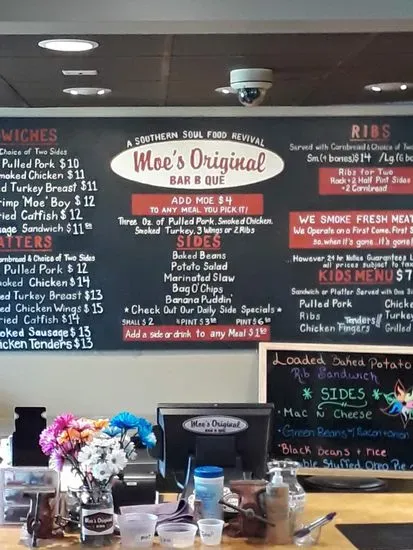 A SOUTHERN SOUL FOOD REVIVAL
Moe's Original
BAR B QUE
ADD MOE $4
TO ANY MEAL, YOU PICK IT!
Three Oz. of Pulled Pork, Smoked Chicken,
Smoked Turkey, 3 Wings or 2 Ribs
SIDES
Baked Beans
Potato Salad
Marinated Slaw
Bag O' Chips
Banana Puddin'
*Check Out Our Daily Side Specials*
SMALL $2 ½ PINT $3 PINT $6
Add a side or drink to any Meal
Choice of Two Sides
Pulled Pork $10
Chicken $11
Turkey Breast $11
'Moe' Boy $12
Catfish $12
Sausage Sandwich $11
Cornbread & Choice of Two Sides
Pulled Pork $12
Chicken $14
Turkey Breast $13
Chicken Wings $15
Catfish $14
Sausage $13
Chicken Tenders $13
RIBS
Served with Cornbread & Choice of
Sm (4 bones) $14
RIBS for Two
Rack + 2 Half Pint Sides
+ 2 Cornbread
WE SMOKE FRESH
We Operate on a First Come, First
so..when it's gone..it's
However, 24 hr Notice Guarantees
all prices subject to
KIDS MENU $7
Sandwich or Platter Served with One
Pulled Pork
Ribs
Chicken Fingers
Tenders
Chicken
Grilled
Moe's Original
BAR B QUE
Loaded Baked Potato
Rib Sandwich
* SIDES *
- Mac n Cheese
- Green Beans w/ Bacon + onion
- Black beans + rice
Stuffed Oreo Pie
Moe's Original